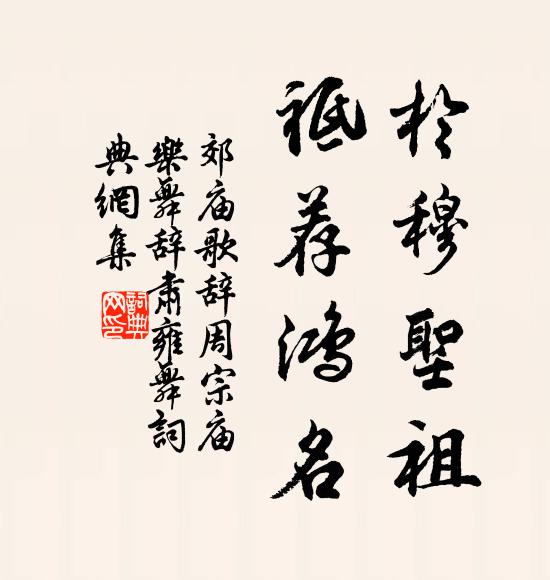 於穆聖祖
祗荐鴻名
郊庙歌辞周宗庙
樂舞辞肅雍舞詞
典網集
詞典
网印